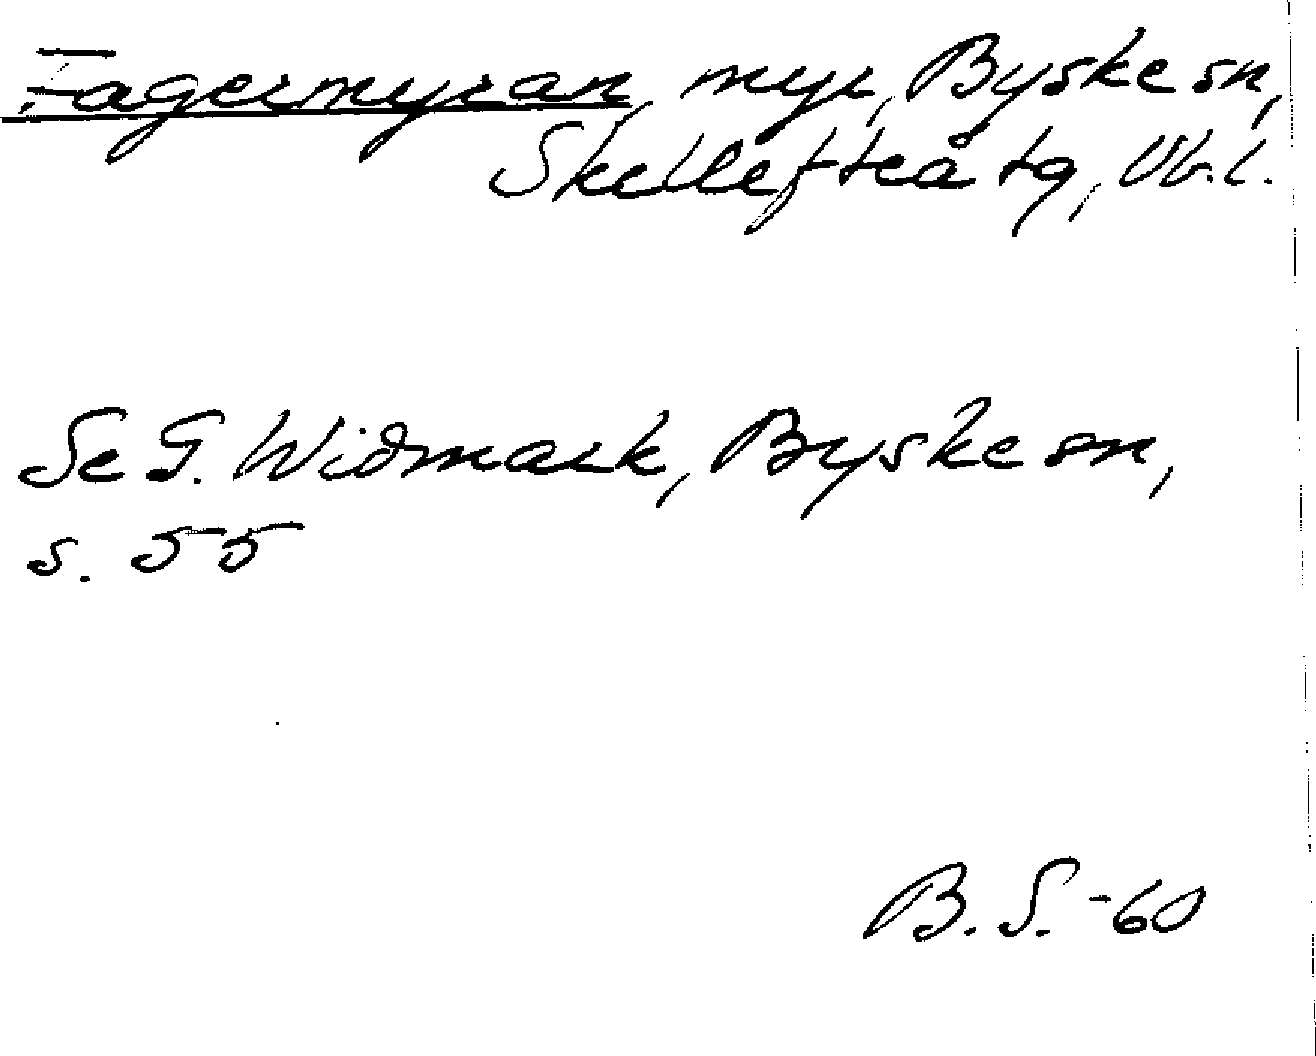 Fagermyran, myr, Byske sn,
Skellefteå tg, Vb.l.
Se G. Widmark, Byske sn,
s. 55
B. S. -60